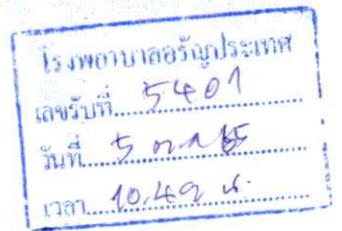 โรงพยาบาลอรัญประเทศ
เลขรับที่ 5401
วันที่ 5 ต.ค. 65
เวลา 10.49 น.